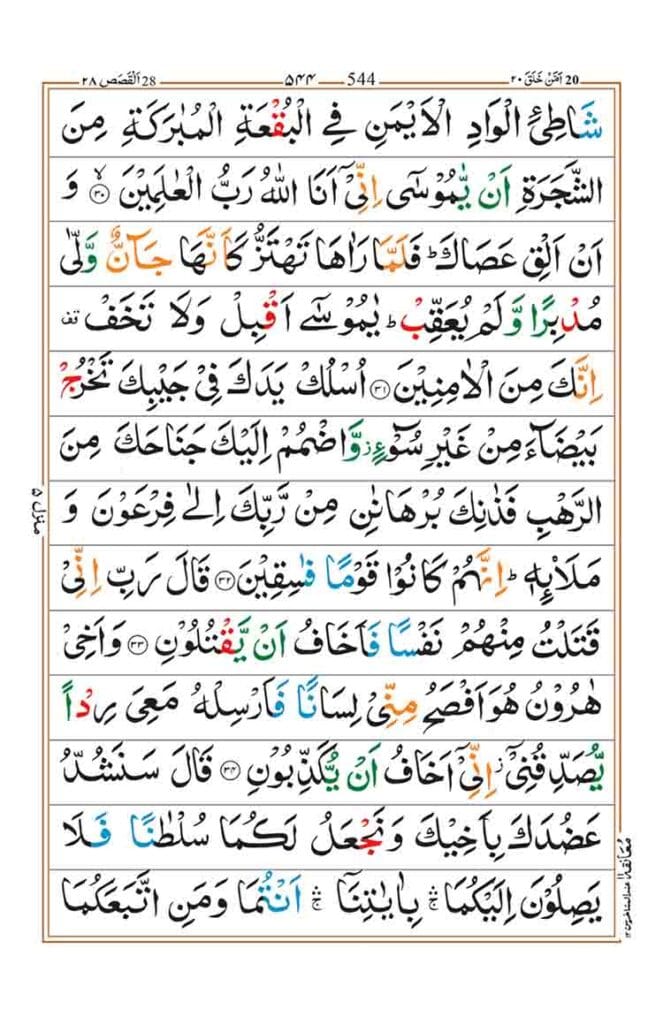 اَمَّنْ خَلَقَ ٢٠ 20 544 ٥٤٤ اَلْقَصَص ٢٨ 28
شَاطِئِ الْوَادِ الْاَيْمَنِ فِي الْبُقْعَةِ الْمُبٰرَكَةِ مِنَ
الشَّجَرَةِ اَنْ يّٰمُوْسٰٓى اِنِّىْٓ اَنَا اللّٰهُ رَبُّ الْعٰلَمِيْنَ ۙ﴿٣٠﴾ وَ
اَنْ اَلْقِ عَصَاكَ ؕ فَلَمَّا رَاٰهَا تَهْتَزُّ كَاَنَّهَا جَآنٌّ وَّلّٰى
مُدْبِرًا وَّلَمْ يُعَقِّبْ ؕ يٰمُوْسٰٓى اَقْبِلْ وَلَا تَخَفْ قف
اِنَّكَ مِنَ الْاٰمِنِيْنَ ﴿٣١﴾ اُسْلُكْ يَدَكَ فِىْ جَيْبِكَ تَخْرُجْ
بَيْضَآءَ مِنْ غَيْرِ سُوْٓءٍ ز وَّاضْمُمْ اِلَيْكَ جَنَاحَكَ مِنَ
الرَّهْبِ فَذٰنِكَ بُرْهَانٰنِ مِنْ رَّبِّكَ اِلٰى فِرْعَوْنَ وَ
مَلَا۟ئِهٖ ؕ اِنَّهُمْ كَانُوْا قَوْمًا فٰسِقِيْنَ ﴿٣٢﴾ قَالَ رَبِّ اِنِّىْ
قَتَلْتُ مِنْهُمْ نَفْسًا فَاَخَافُ اَنْ يَّقْتُلُوْنِ ﴿٣٣﴾ وَاَخِىْ
هٰرُوْنُ هُوَ اَفْصَحُ مِنِّىْ لِسَانًا فَاَرْسِلْهُ مَعِىَ رِدْاً
يُّصَدِّقُنِىْٓ ز اِنِّىْٓ اَخَافُ اَنْ يُّكَذِّبُوْنِ ﴿٣٤﴾ قَالَ سَنَشُدُّ
عَضُدَكَ بِاَخِيْكَ وَنَجْعَلُ لَكُمَا سُلْطٰنًا فَلَا
يَصِلُوْنَ اِلَيْكُمَا ۛۚ بِاٰيٰتِنَآ ۛۚ اَنْتُمَا وَمَنِ اتَّبَعَكُمَا
منزل ٥